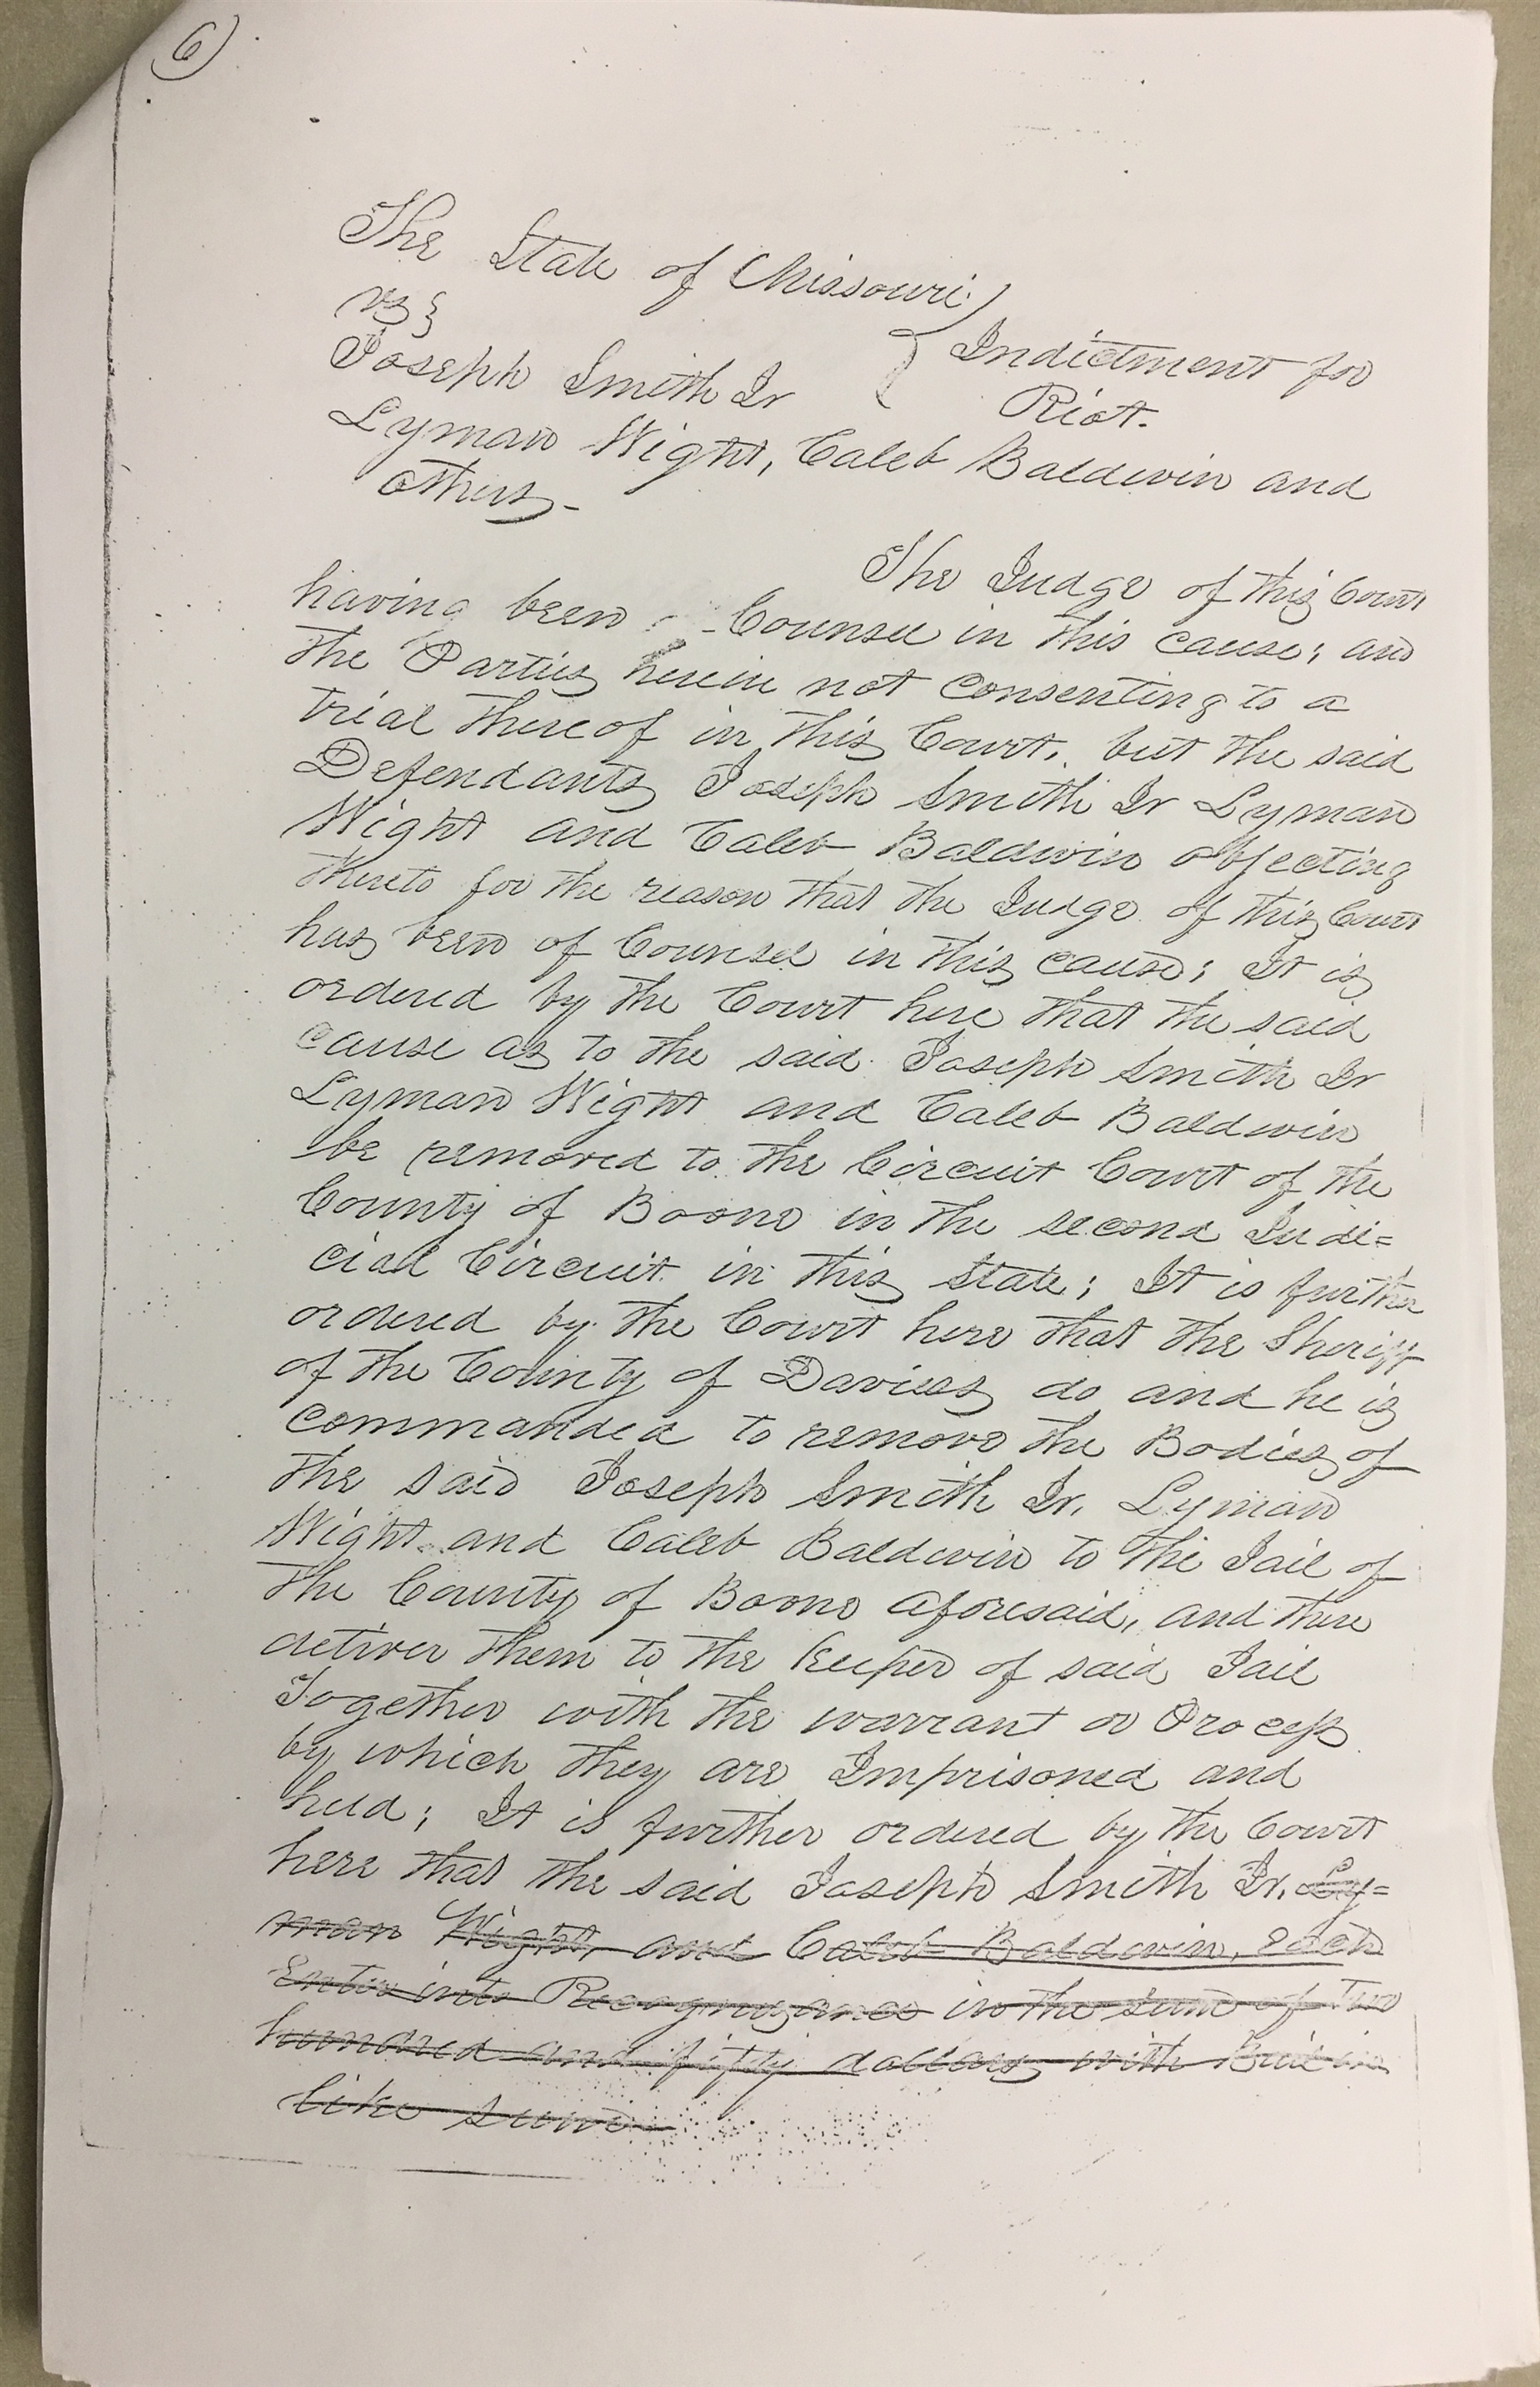 6
The State of Missouri
vs
Joseph Smith Jr } Indictment for
Riot.
Lyman Wight, Caleb Baldwin and
others.-
The Judge of this Court
having been Counsel in this cause; and
the Parties herein not consenting to a
trial thereof in this Court, but the said
Defendants Joseph Smith Jr Lyman
Wight and Caleb Baldwin objecting
thereto for the reason that the Judge of this Court
has been of Counsel in this cause; It is
ordered by the Court here that the said
cause as to the said Joseph Smith Jr
Lyman Wight and Caleb Baldwin
be removed to the Circuit Court of the
County of Boone in the second Judi=
cial Circuit in this State; It is further
ordered by the Court here that the Sheriff
of the County of Daviess do and he is
commanded to remove the Bodies of
the said Joseph Smith Jr. Lyman
Wight and Caleb Baldwin to the Jail of
the County of Boone aforesaid, and there
deliver them to the Keeper of said Jail
Together with the warrant or Process
by which they are Imprisoned and
held; It is further ordered by the Court
here that the said Joseph Smith Jr. Ly=
man Wight, and Caleb Baldwin, each
Enter into Recognizance in the sum of Two
hundred and fifty dollars with Bail in
like sum